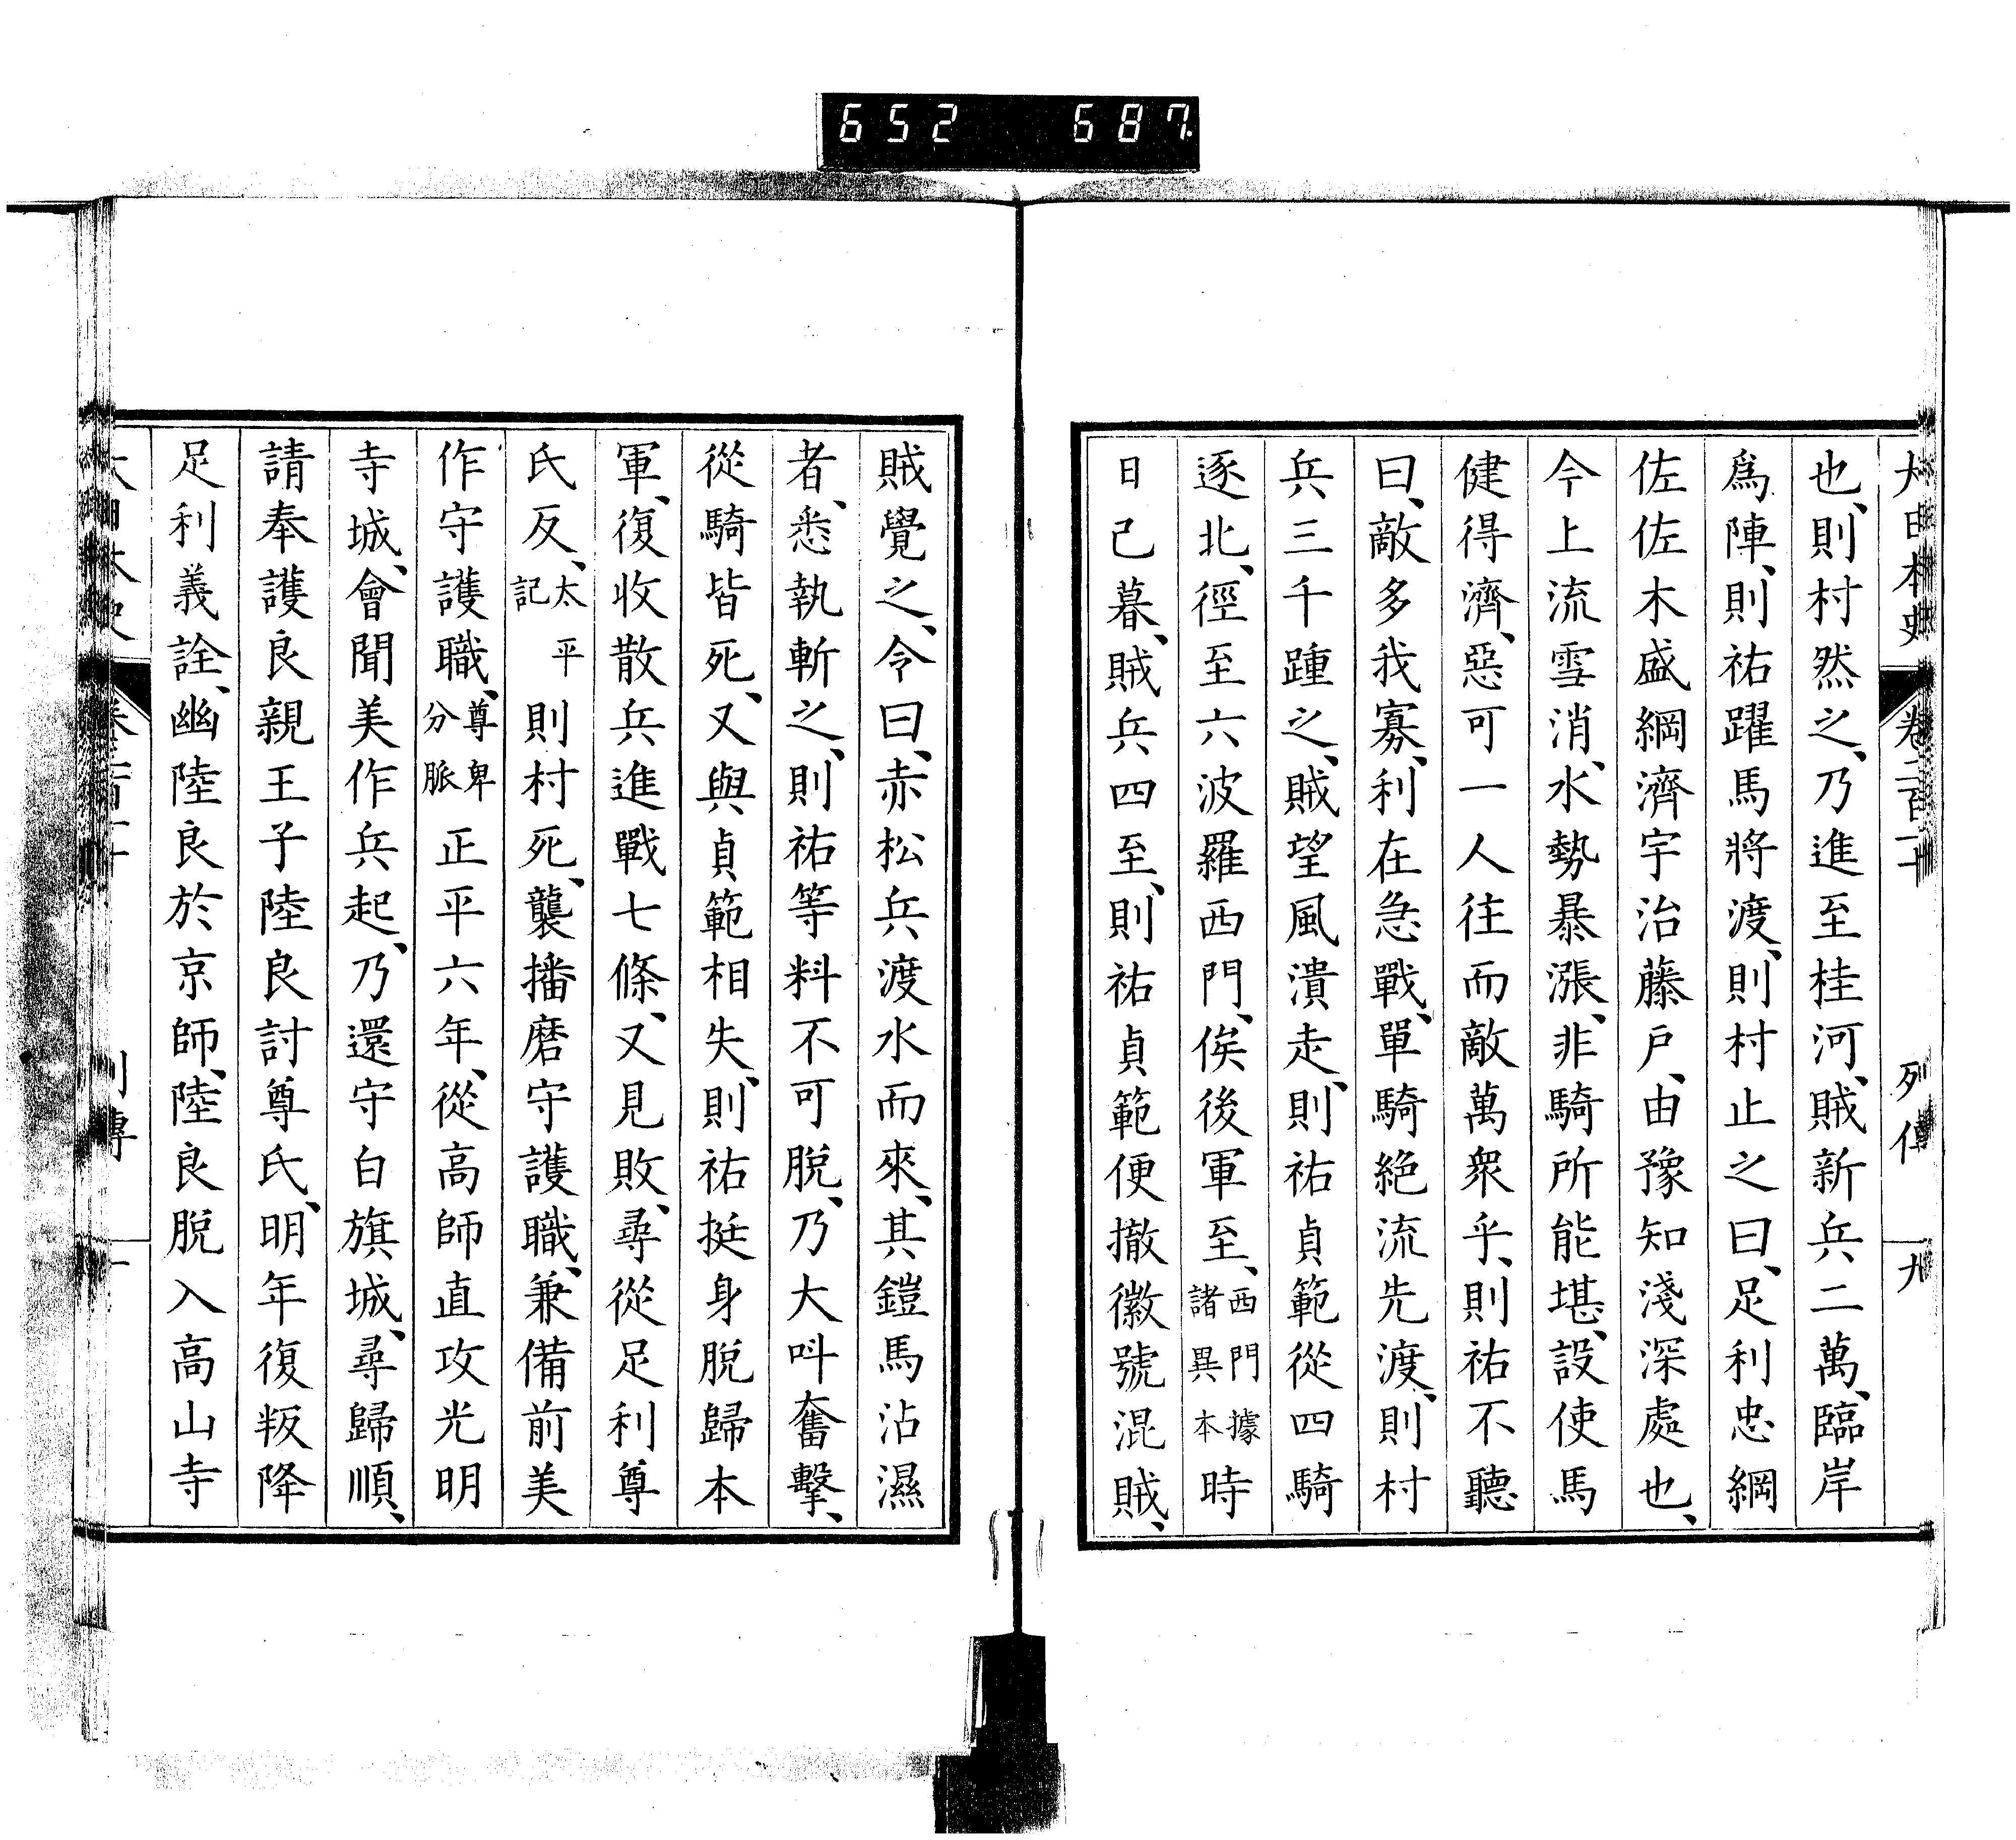 652 687.
大日本史 卷二百二十 列傳 九
也、則村然之、乃進至桂河、賊新兵二萬、臨岸
爲陣、則祐躍馬將渡、則村止之曰、足利忠綱
佐佐木盛綱濟宇治藤戶、由豫知淺深處也、
今上流雪消、水勢暴漲、非騎所能堪、設使馬
健得濟、惡可一人往而敵萬衆乎、則祐不聽
曰、敵多我寡、利在急戰、單騎絕流先渡、則村
兵三千踵之、賊望風潰走、則祐貞範從四騎
逐北、徑至六波羅西門、俟後軍至、西門據諸異本時
日已暮、賊兵四至、則祐貞範便撤徽號混賊、
賊覺之、令曰、赤松兵渡水而來、其鎧馬沾濕
者、悉執斬之、則祐等料不可脫、乃大呌奮擊、
從騎皆死、又與貞範相失、則祐挺身脫歸本
軍、復收散兵進戰七條、又見敗、尋從足利尊
氏反、太平記則村死、襲播磨守護職、兼備前美
作守護職、尊卑分脈正平六年、從高師直攻光明
寺城、會聞美作兵起、乃還守白旗城、尋歸順、
請奉護良親王子陸良討尊氏、明年復叛降
足利義詮、幽陸良於京師、陸良脫入高山寺